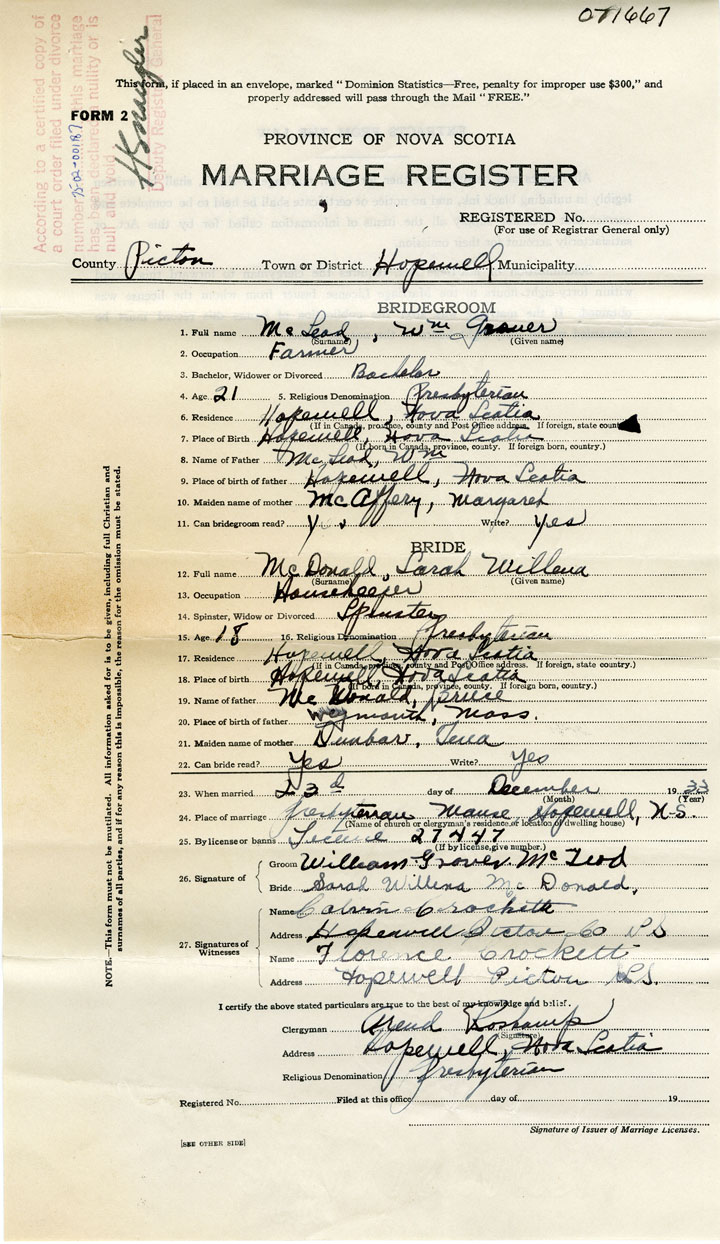 071667
This form, if placed in an envelope, marked "Dominion Statistics—Free, penalty for improper use $300," and
properly addressed will pass through the Mail "FREE."
FORM 2
According to a certified copy of
a court order filed under divorce
number 75-02-00187 this marriage
has been declared a nullity or is
null and void
Deputy Registrar General
PROVINCE OF NOVA SCOTIA
MARRIAGE REGISTER
REGISTERED No.
(For use of Registrar General only)
County Picton Town or District Hopewell Municipality
BRIDEGROOM
1. Full name McLeod, Wm Grover
(Surname) (Given name)
2. Occupation Farmer
3. Bachelor, Widower or Divorced Bachelor
4. Age 21 5. Religious Denomination Presbyterian
6. Residence Hopewell, Nova Scotia
(If in Canada, province, county and Post Office address. If foreign, state country.)
7. Place of Birth Hopewell, Nova Scotia
(If born in Canada, province, county. If foreign born, country.)
8. Name of Father McLeod, Wm
9. Place of birth of father Hopewell, Nova Scotia
10. Maiden name of mother McAffery, Margaret
11. Can bridegroom read? Write? Yes
BRIDE
12. Full name McDonald, Sarah Willena
(Surname) (Given name)
13. Occupation Housekeeper
14. Spinster, Widow or Divorced Spinster
15. Age 18 16. Religious Denomination Presbyterian
17. Residence Hopewell, Nova Scotia
(If in Canada, province, county and Post Office address. If foreign, state country.)
18. Place of birth Hopewell, Nova Scotia
(If born in Canada, province, county. If foreign born, country.)
19. Name of father McDonald,
20. Place of birth of father Weymouth, Mass.
21. Maiden name of mother Dunbar, Tena
22. Can bride read? Yes Write? Yes
23. When married 23d day of December 1933
(Month) (Year)
24. Place of marriage Presbyterian Manse Hopewell, N.S.
(Name of church or clergyman's residence or location of dwelling house)
25. By license or banns Licence 27447
(If by license, give number.)
26. Signature of
Groom William Grover McLeod
Bride Sarah Willena McDonald,
27. Signatures of Witnesses
Name Calvin Crockett
Address Hopewell Picton Co N S
Name Florence Crockett
Address Hopewell Picton N.S.
I certify the above stated particulars are true to the best of my knowledge and belief.
Clergyman Arend Roskamp
(Signature)
Address Hopewell, Nova Scotia
Religious Denomination Presbyterian
Registered No. Filed at this office day of 19
Signature of Issuer of Marriage Licenses.
[SEE OTHER SIDE]
NOTE.—This form must not be mutilated. All information asked for is to be given, including full Christian and
surnames of all parties, and if for any reason this is impossible, the reason for the omission must be stated.